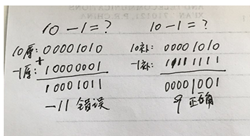 10-1=?
10原: 00001010
+
-1原: 10000001
10001011
-11 错误
10-1=?
10补: 00001010
-1补: 11111111
00001001
9 正确